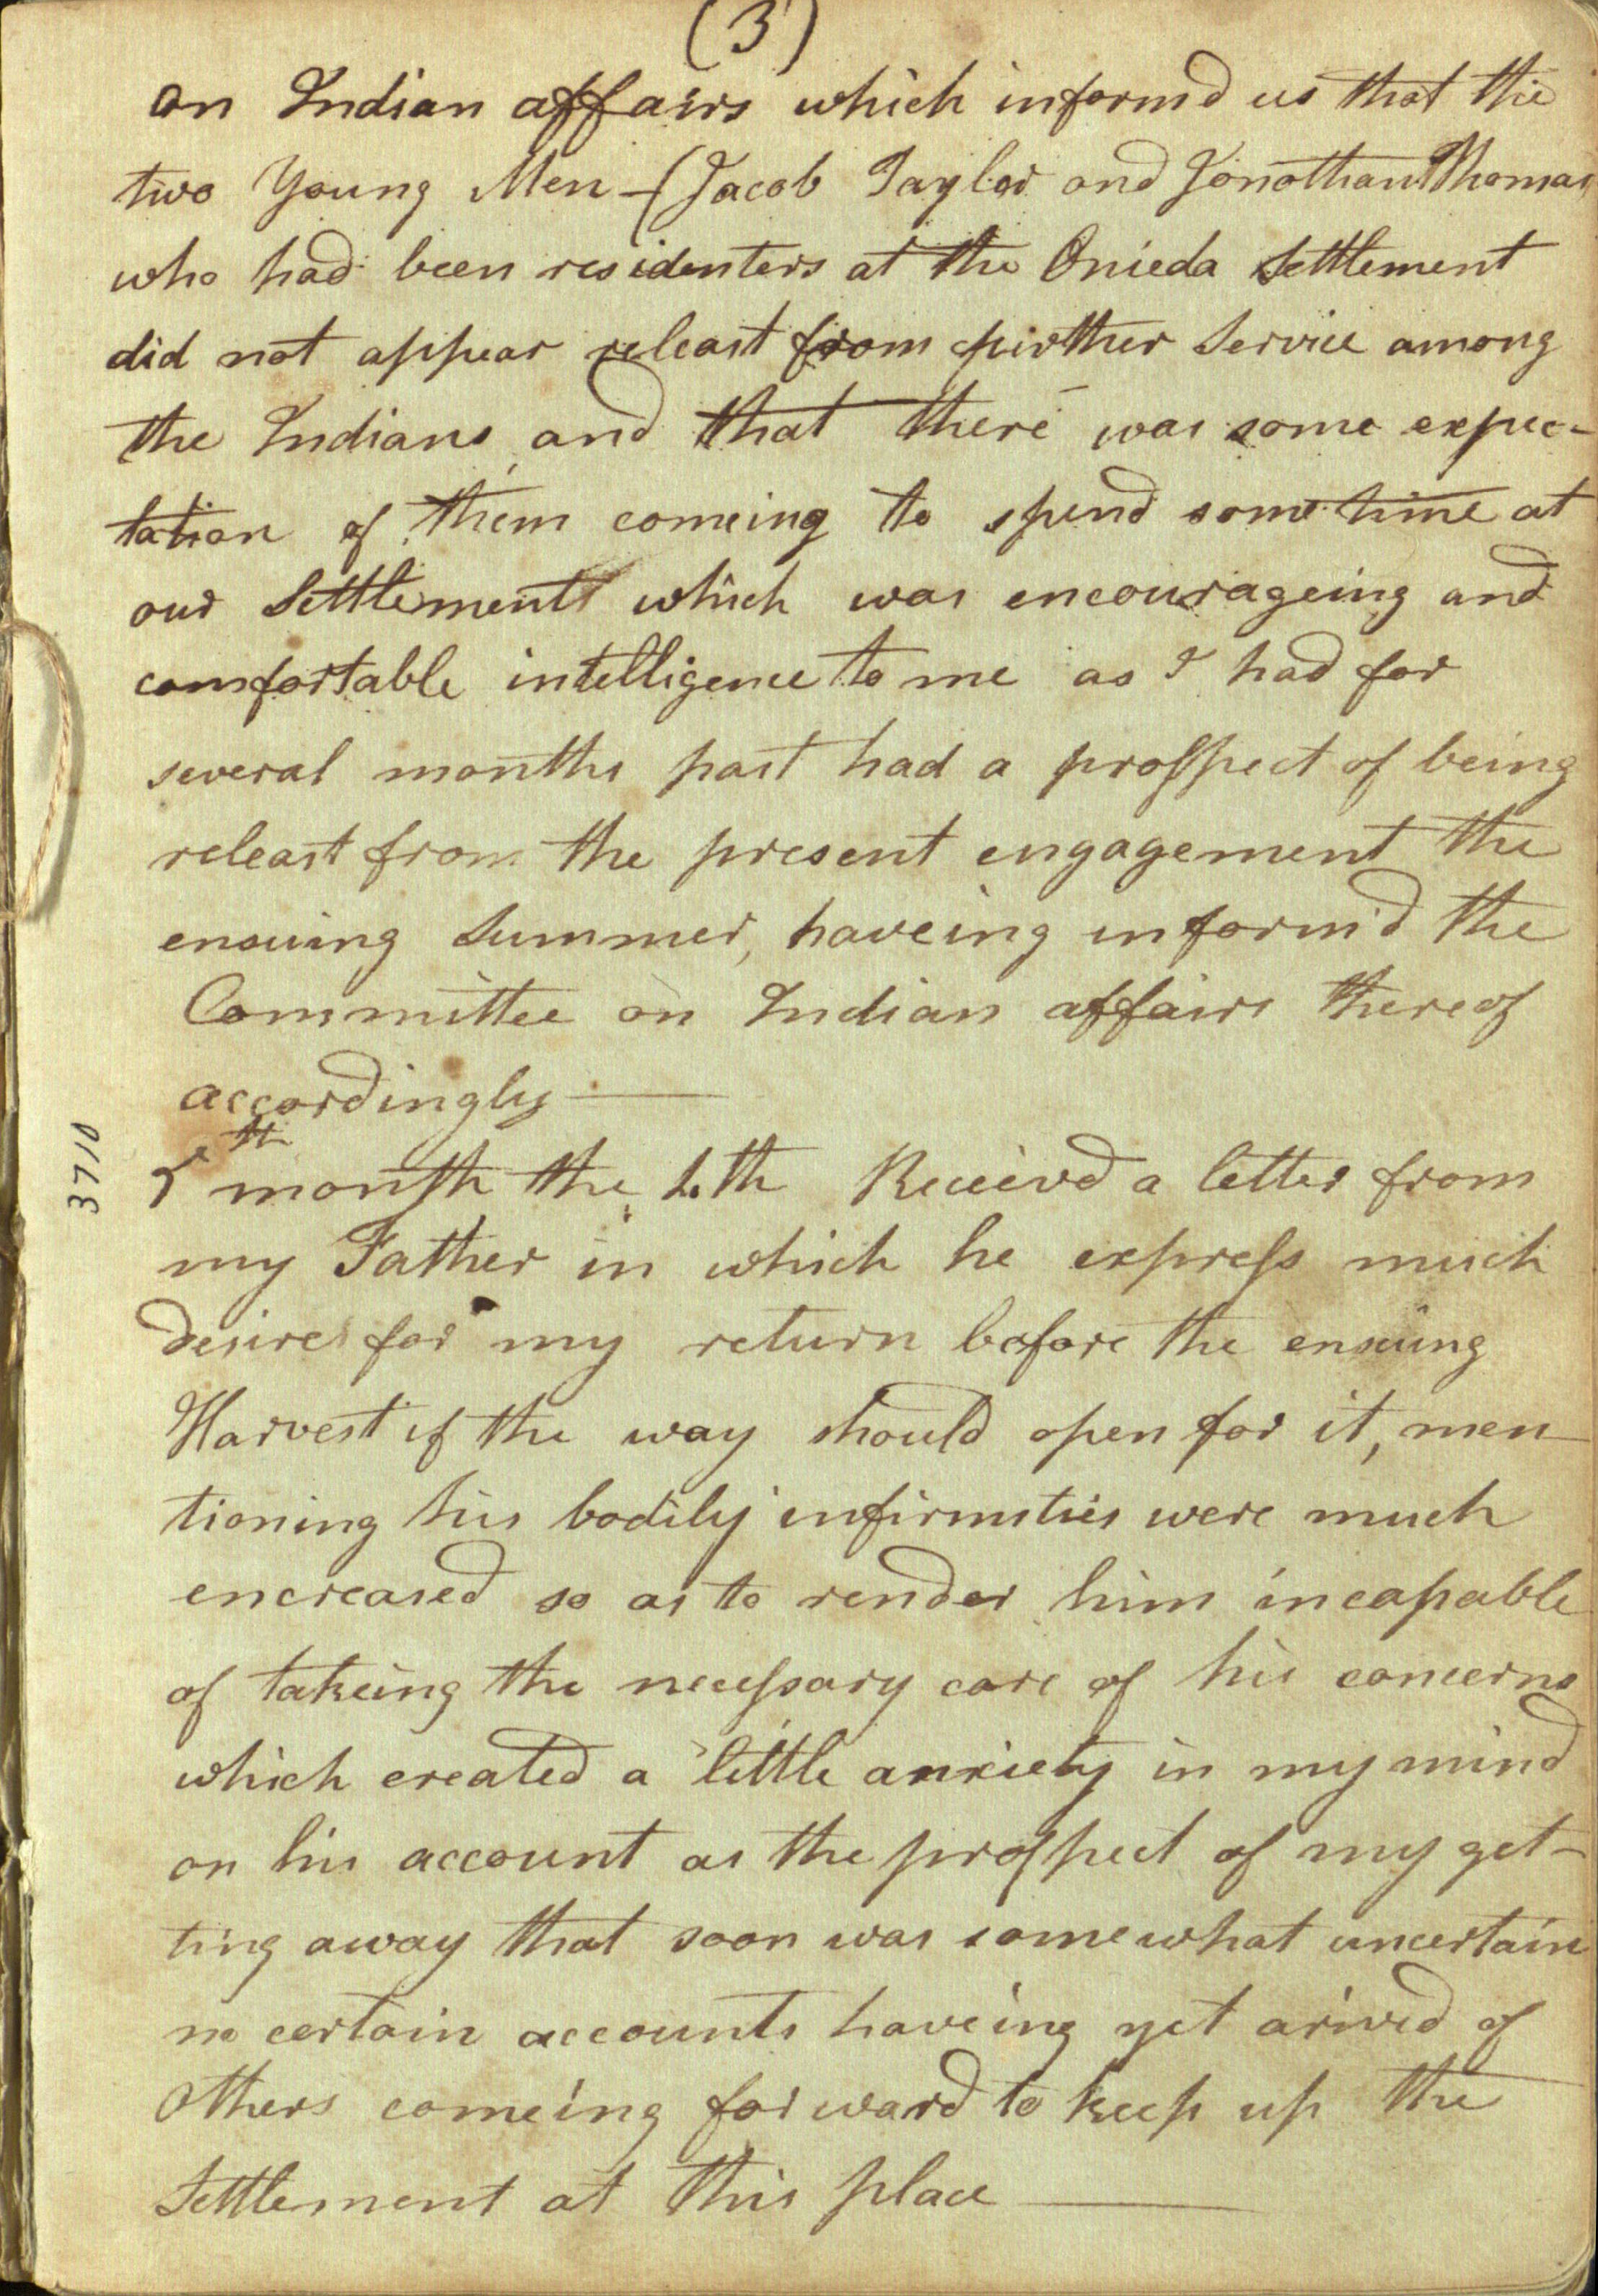 (3)
on Indian affairs which inform'd us that the
two Young Men – (Jacob Taylor and Jonathan Thomas
who had been residenters at the Onieda Settlement
did not appear releast from further Service among
the Indians and that there was some expec-
tation of them comeing to spend some time at
our Settlement which was encourageing and
comfortable intelligence to me as I had for
several months past had a prosspect of being
releast from the present engagement the
ensuing Summer, haveing inform'd the
Committee on Indian affairs thereof
accordingly —
5th month the th Receiv'd a letter from
my Father in which he express much
desires for my return before the ensuing
Harvest if the way should open for it, men-
tioning his bodily infirmities were much
encreased so as to render him incapable
of takeing the necessary care of his concerns
which created a little anxiety in my mind
on his account as the prosspect of my get-
ting away that soon was somewhat uncertain
no certain accounts haveing yet arived of
others comeing forward to keep up the
Settlement at this place —
3710